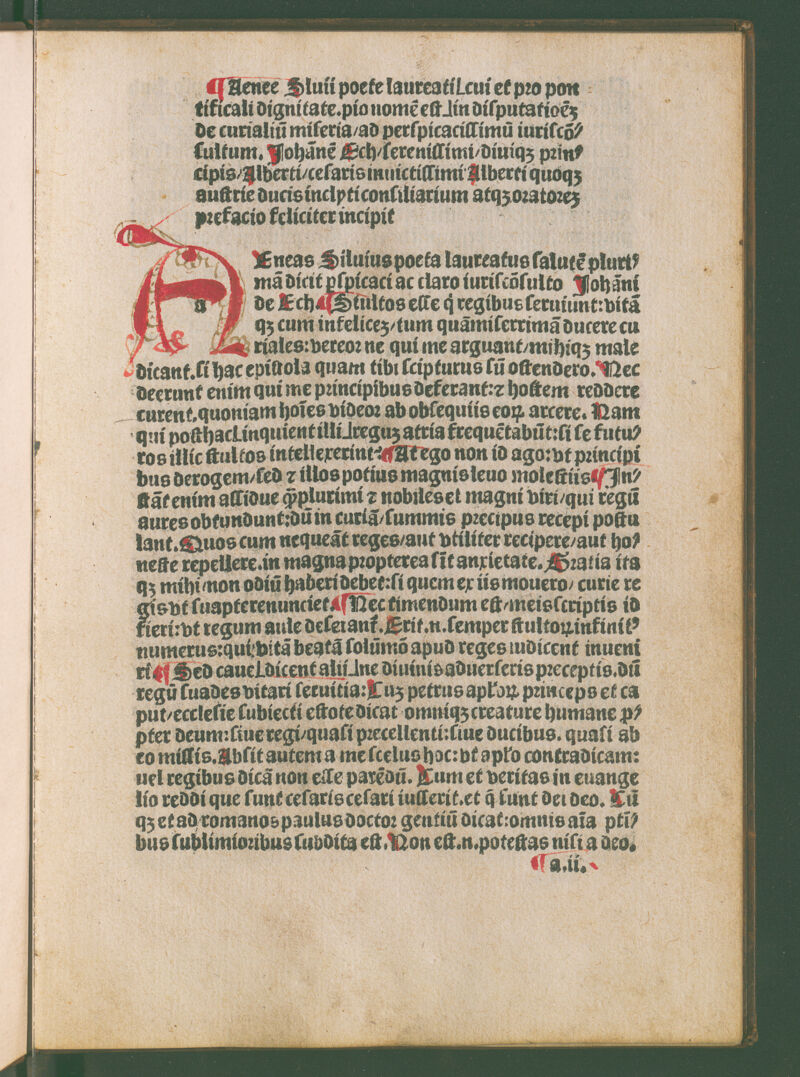 ¶ Aenee Siluii poete laureati[cui et pro pon
tificali dignitate.pio nomē est]in disputatioēꝫ
de curialiū miseria/ad perspicacissimū iuriscō⸗
sultum. Johānē Ech/serenissimi/diuiqꝫ prin⸗
cipis/Alberti/cesaris inuictissimi Alberti quoqꝫ
austrie ducis inclyti consiliarium atqꝫ oratoreꝫ
prefacio feliciter incipit
a
AEneas Siluius poeta laureatus salutē pluri⸗
mā dicit ꝑspicaci ac claro iuriscōsulto Johāni
de Ech ¶ Stultos esse q̇ regibus seruiunt:vitā
qꝫ cum infeliceꝫ/tum quāmiserrimā ducere cu
riales:vereor ne qui me arguant/mihiqꝫ male
dicant.si hac epistola quam tibi scipturus sū ostendero. Nec
deerunt enim qui me principibus deferant:⁊ hostem reddere
curent.quoniam hoīes videor ab obsequiis eoꝝ arcere. Nam
qui posthac[inquient illi]reguꝫ atria frequētabūt:si se futu⸗
ros illic stultos intellexerint? ¶ At ego non id ago:vt principi
bus derogem/sed ⁊ illos potius magnis leuo molestiis ¶ In⸗
stāt enim assidue ꝙ̄plurimi ⁊ nobiles et magni viri/qui regū
aures obtundunt:dū in curiā/summis precipus recepi postu
lant. Quos cum nequeāt reges/aut vtiliter recipere/aut ho⸗
neste repellere.in magna propterea sīt anxietate. Gratia ita
qꝫ mihi/non odiū haberi debet:si quem ex iis mouero/ curie re
gis vt suapte renunciet ¶ Nec timendum est/meis scriptis id
fieri:vt regum aule deserant̄. Erit.n.semper stultoꝝ infinit⁹
numerus:qui/vitā beatā solūmō apud reges iudicent inueni
ri ¶ Sed caue[dicent alii]ne diuinis aduerseris preceptis.dū
regū suades vitari seruitia: Cuꝫ petrus apl̄oꝝ princeps et ca
put/ecclesie subiecti estote dicat omniqꝫ creature humane ꝓ⸗
pter deum:siue regi/quasi precellenti:siue ducibus. quasi ab
eo missis. Absit autem a me scelus hoc:vt apl̄o contradicam:
uel regibus dicā non esse parēdū. Cum et veritas in euange
lio reddi que sunt cesaris cesari iusserit.et q̄ sunt dei deo. Cū
qꝫ et ad romanos paulus doctor gentiū dicat:omnis aīa ptī⸗
bus sublimioribus subdita est. Non est.n.potestas nisi a deo.
¶ a.ii.